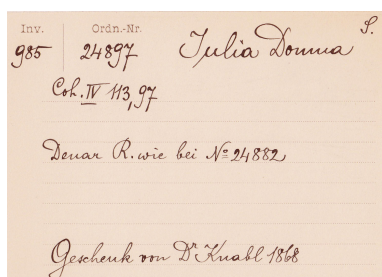 Inv. Ordn.-Nr. S.
985 24897 Julia Domna
Coh. IV 113,97
Denar R. wie bei No 24882
Geschenk von Dr Knabl 1868